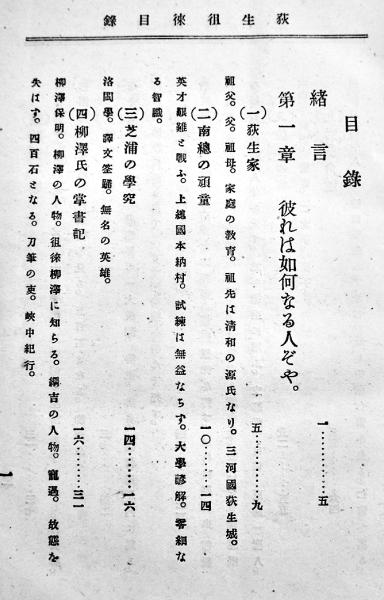 荻生徂徠目錄
目錄
緒言 一………五
第一章 彼れは如何なる人ぞや。
(一)荻生家 五………九
祖父。父。祖母。家庭の敎育。祖先は清和の源氏なり。三河國荻生城。
(二)南總の頑童 一〇………一四
英才艱難と戰ふ。上總國本納村。試練は無益ならず。大學諺解。零細な
る智識。
(三)芝浦の學究 一四………一六
洛閩學。譯文筌蹄。無名の英雄。
(四)柳澤氏の掌書記 一六………三一
柳澤保明。柳澤の人物。徂徠柳澤に知らる。綱吉の人物。寵遇。故態を
失はず。四百石となる。刀筆の吏。峽中紀行。
一